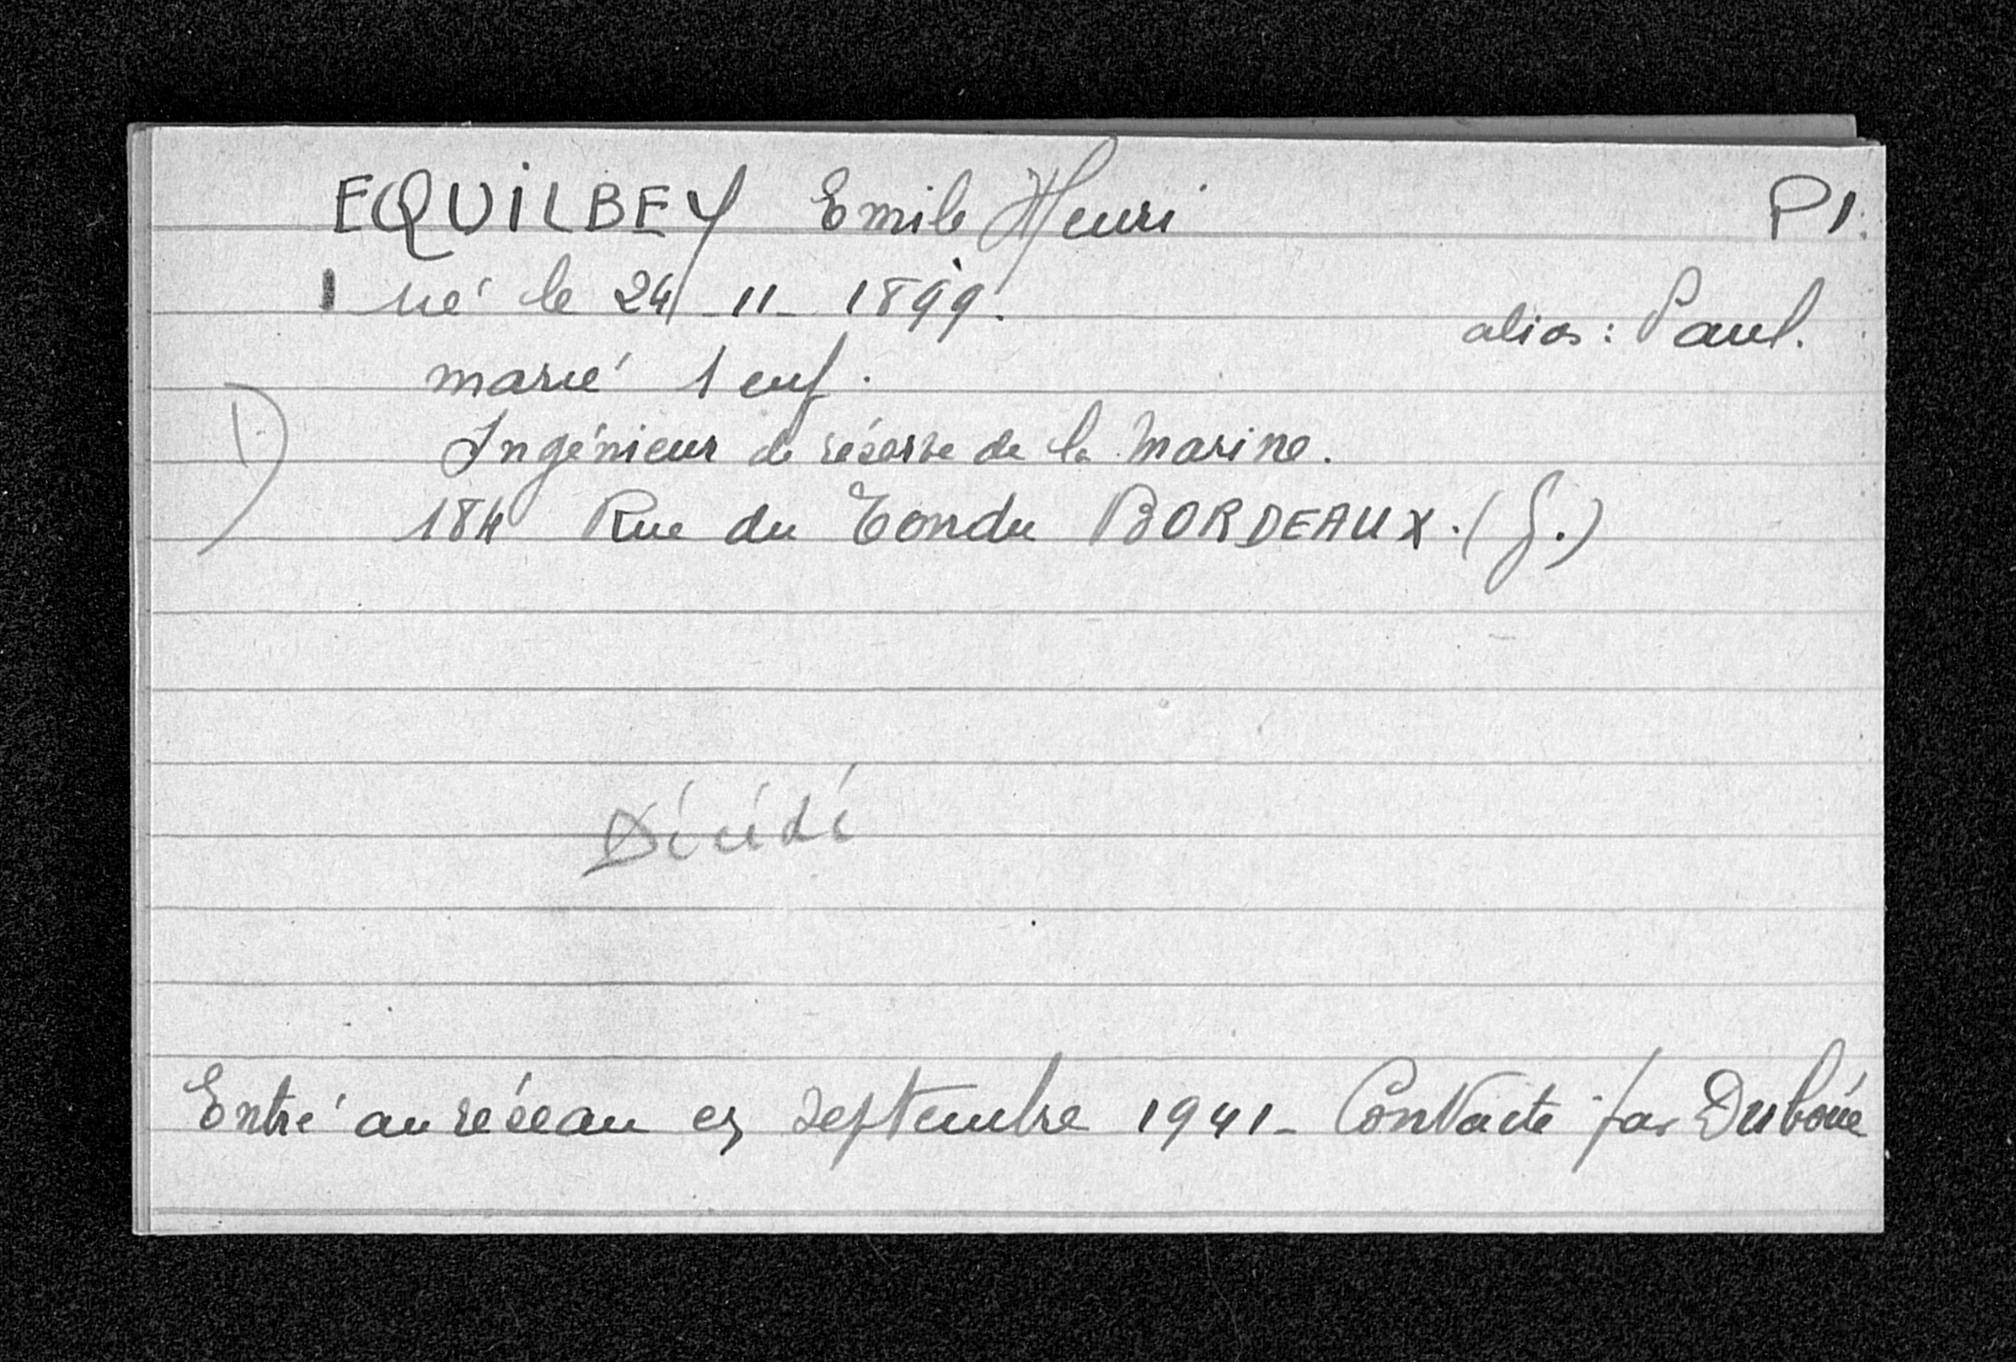 EQUILBEY Emile Henri P1.
né le 24-11-1899.
alias : Paul.
marié 1 enf.
1)
Ingénieur de réserve de la Marine.
184 Rue du Tondu BORDEAUX. (G.)
Décédé
Entré au réseau en septembre 1941 - Contacté par Duboué